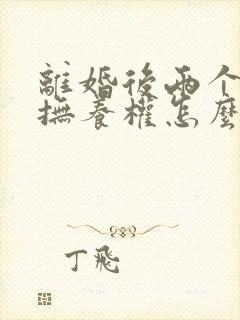 離婚後兩个
撫養權怎麼
丁飛